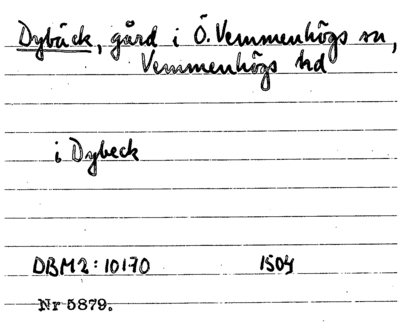 Dybäck, gård i Ö. Vemmenhögs sn,
Vemmenhögs hd
i Dybeck
DBM2:10170 1504
Nr 5879.